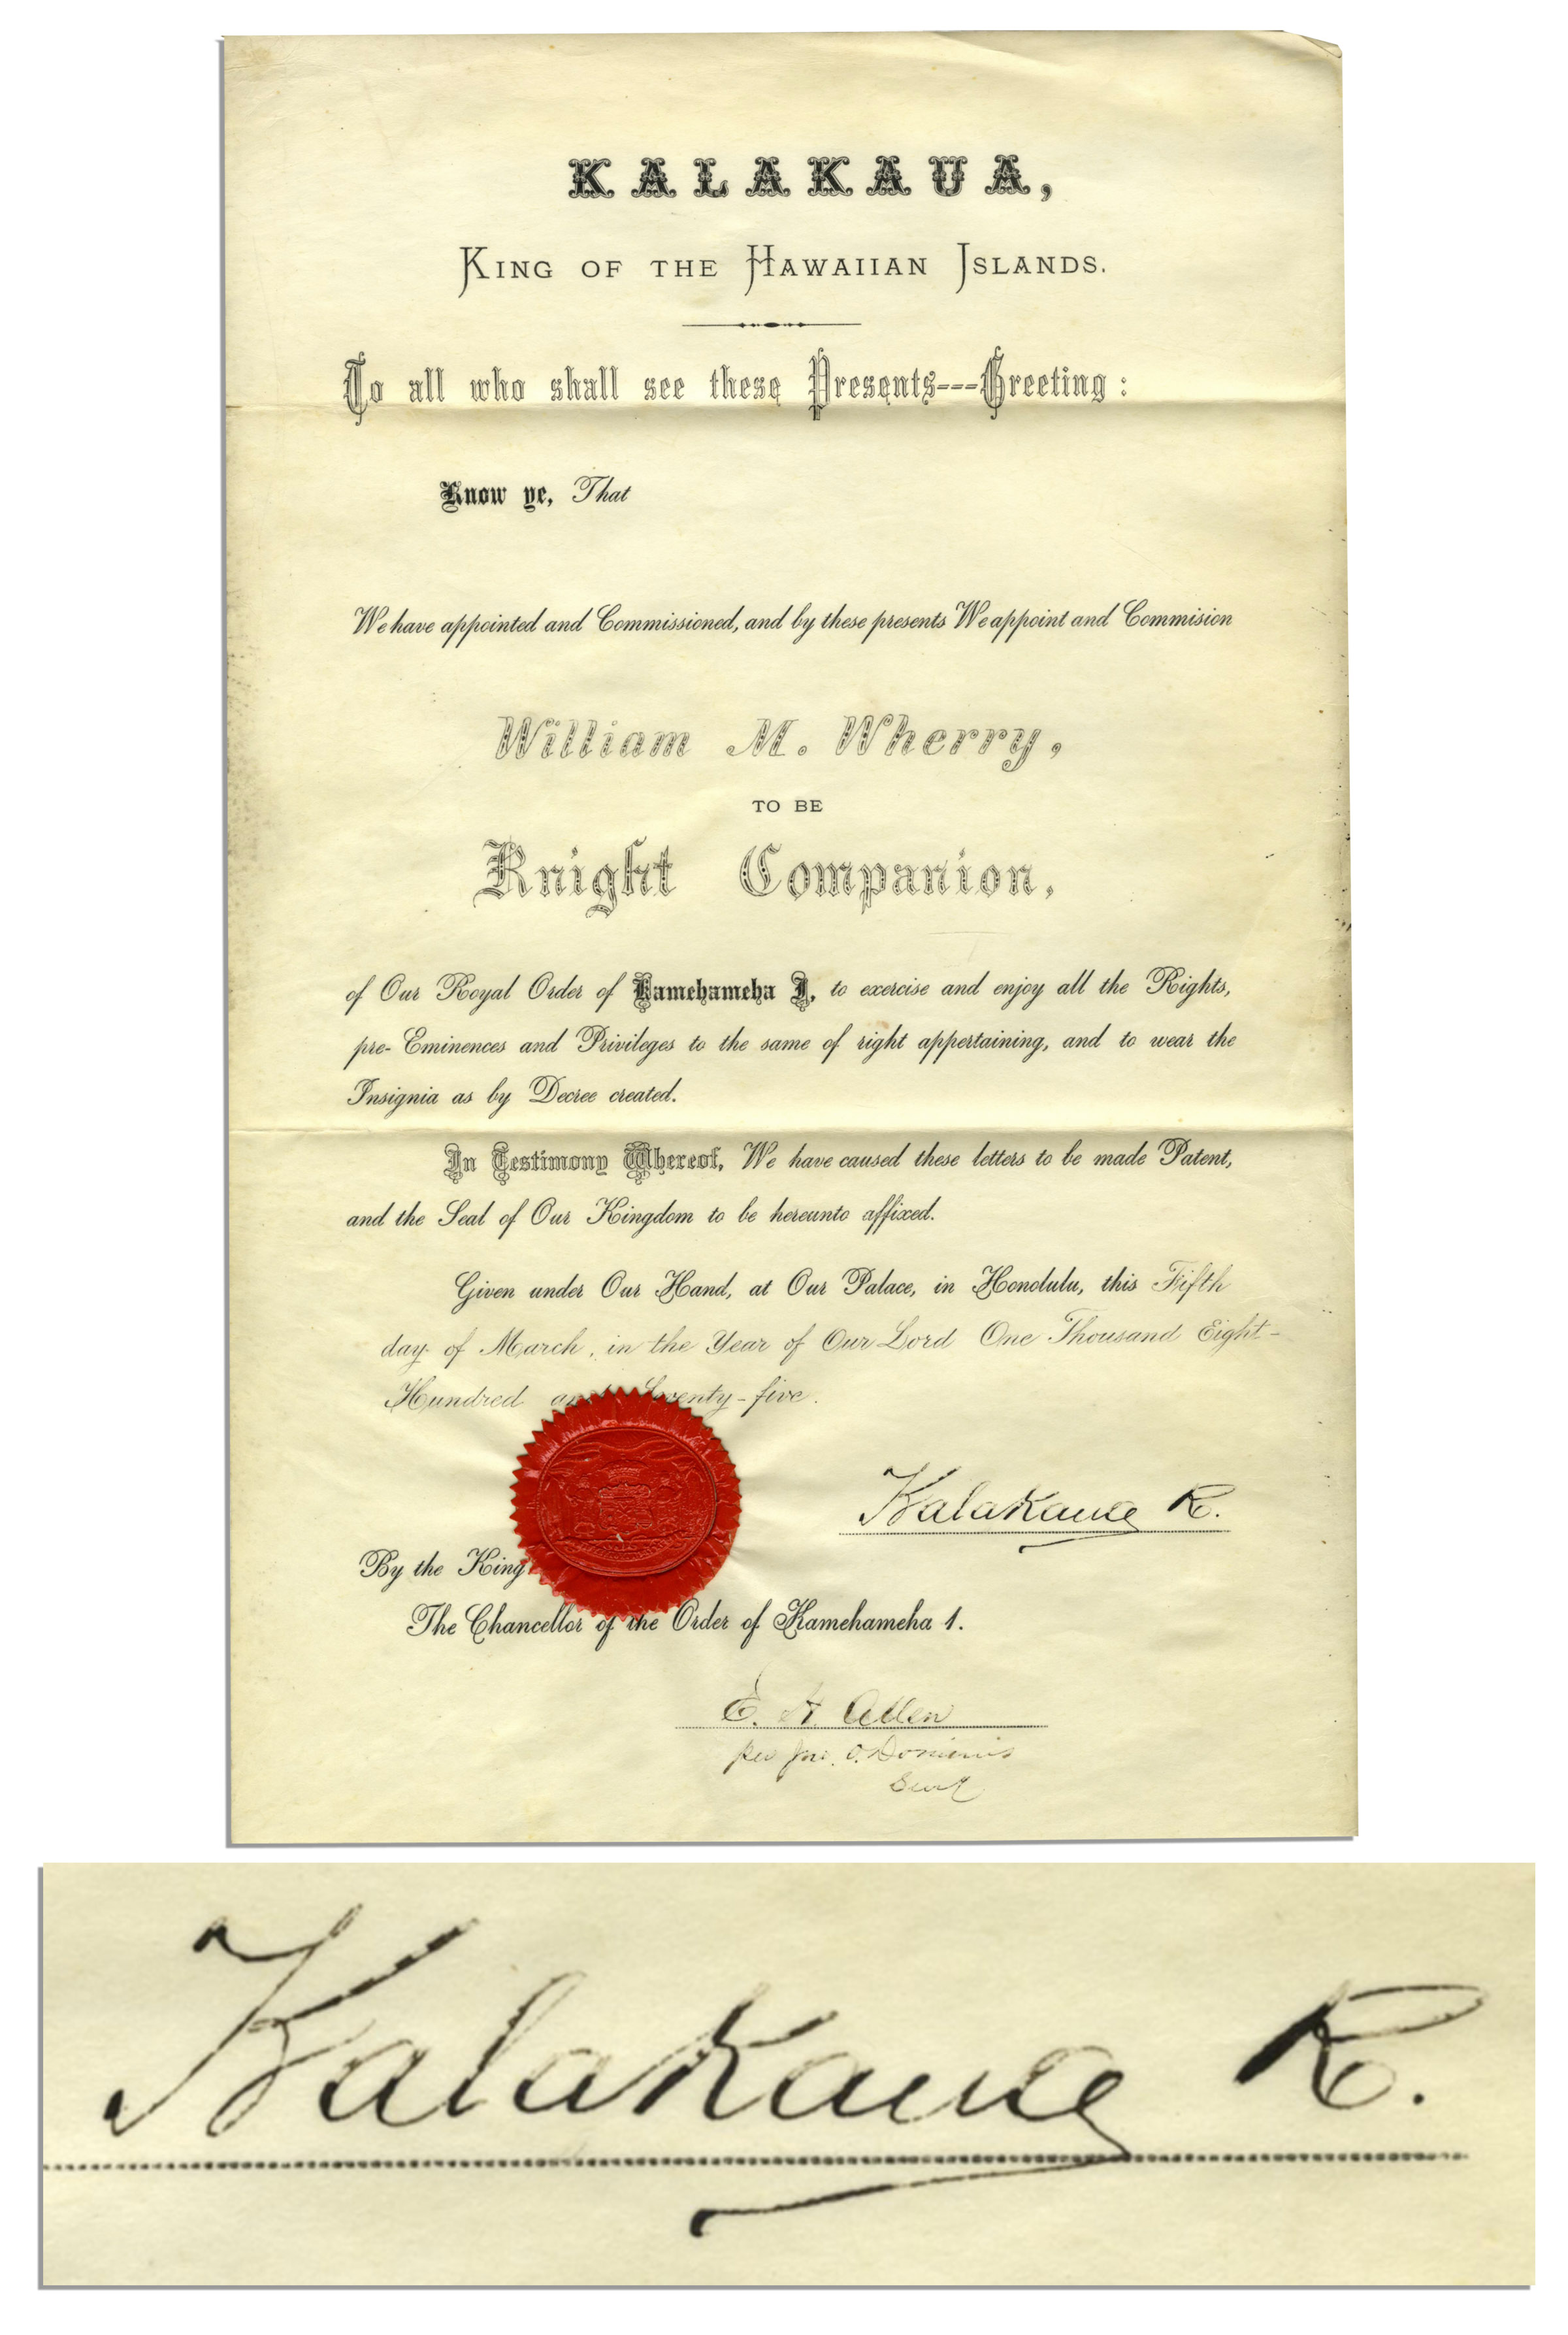 KALAKAUA,
KING OF THE HAWAIIAN ISLANDS.
To all who shall see these Presents---Greeting:
Know ye, That
We have appointed and Commissioned, and by these presents We appoint and Commision
William M. Wherry,
TO BE
Knight Companion,
of Our Royal Order of Kamehameha I, to exercise and enjoy all the Rights,
pre-Eminences and Privileges to the same of right appertaining, and to wear the
Insignia as by Decree created.
In Testimony Whereof, We have caused these letters to be made Patent,
and the Seal of Our Kingdom to be hereunto affixed.
Given under Our Hand, at Our Palace, in Honolulu, this Fifth
day of March, in the Year of Our Lord One Thousand Eight-
Hundred and Seventy-five.
Kalakaua R.
By the King
The Chancellor of the Order of Kamehameha 1.
E. H. Allen
per Jno. O. Dominis
Kalakaua R.